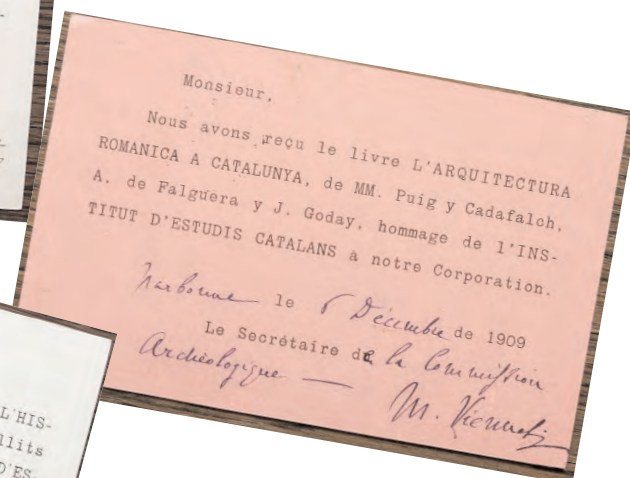 Monsieur,
Nous avons reçu le livre L'ARQUITECTURA
ROMANICA A CATALUNYA, de MM. Puig y Cadafalch,
A. de Falguera y J. Goday, hommage de l'INS-
TITUT D'ESTUDIS CATALANS à notre Corporation.
Narbonne le 6 Décembre de 1909
Le Secrétaire de la Commission
Archéologique
M.
L'HIS-
llits
D'ES-